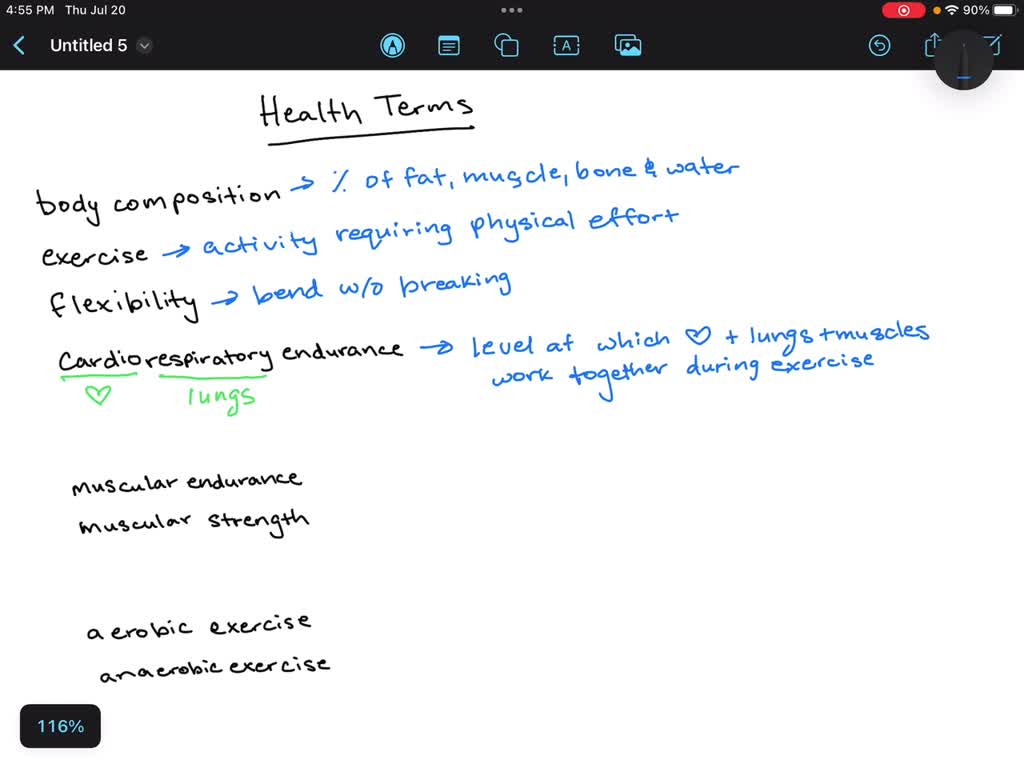 4:55 PM Thu Jul 20
90%
Untitled 5
A
Health Terms
body composition → % of fat, muscle, bone & water
exercise → activity requiring physical effort
flexibility → bend w/o breaking
cardiorespiratory endurance → level at which ♡ + lungs + muscles
work together during exercise
♡ lungs
muscular endurance
muscular strength
aerobic exercise
anaerobic exercise
116%